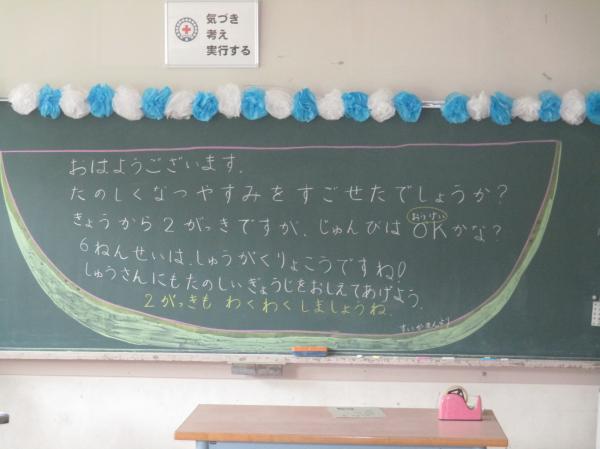 気づき
考え
実行する
おはようございます。
たのしくなつやすみをすごせたでしょうか?
きょうから2がっきですが、じゅんびはOKかな?
6ねんせいは、しゅうがくりょこうですね!
しゅうさんにもたのしいぎょうじをおしえてあげよう。
2がっきも わくわくしましょうね。